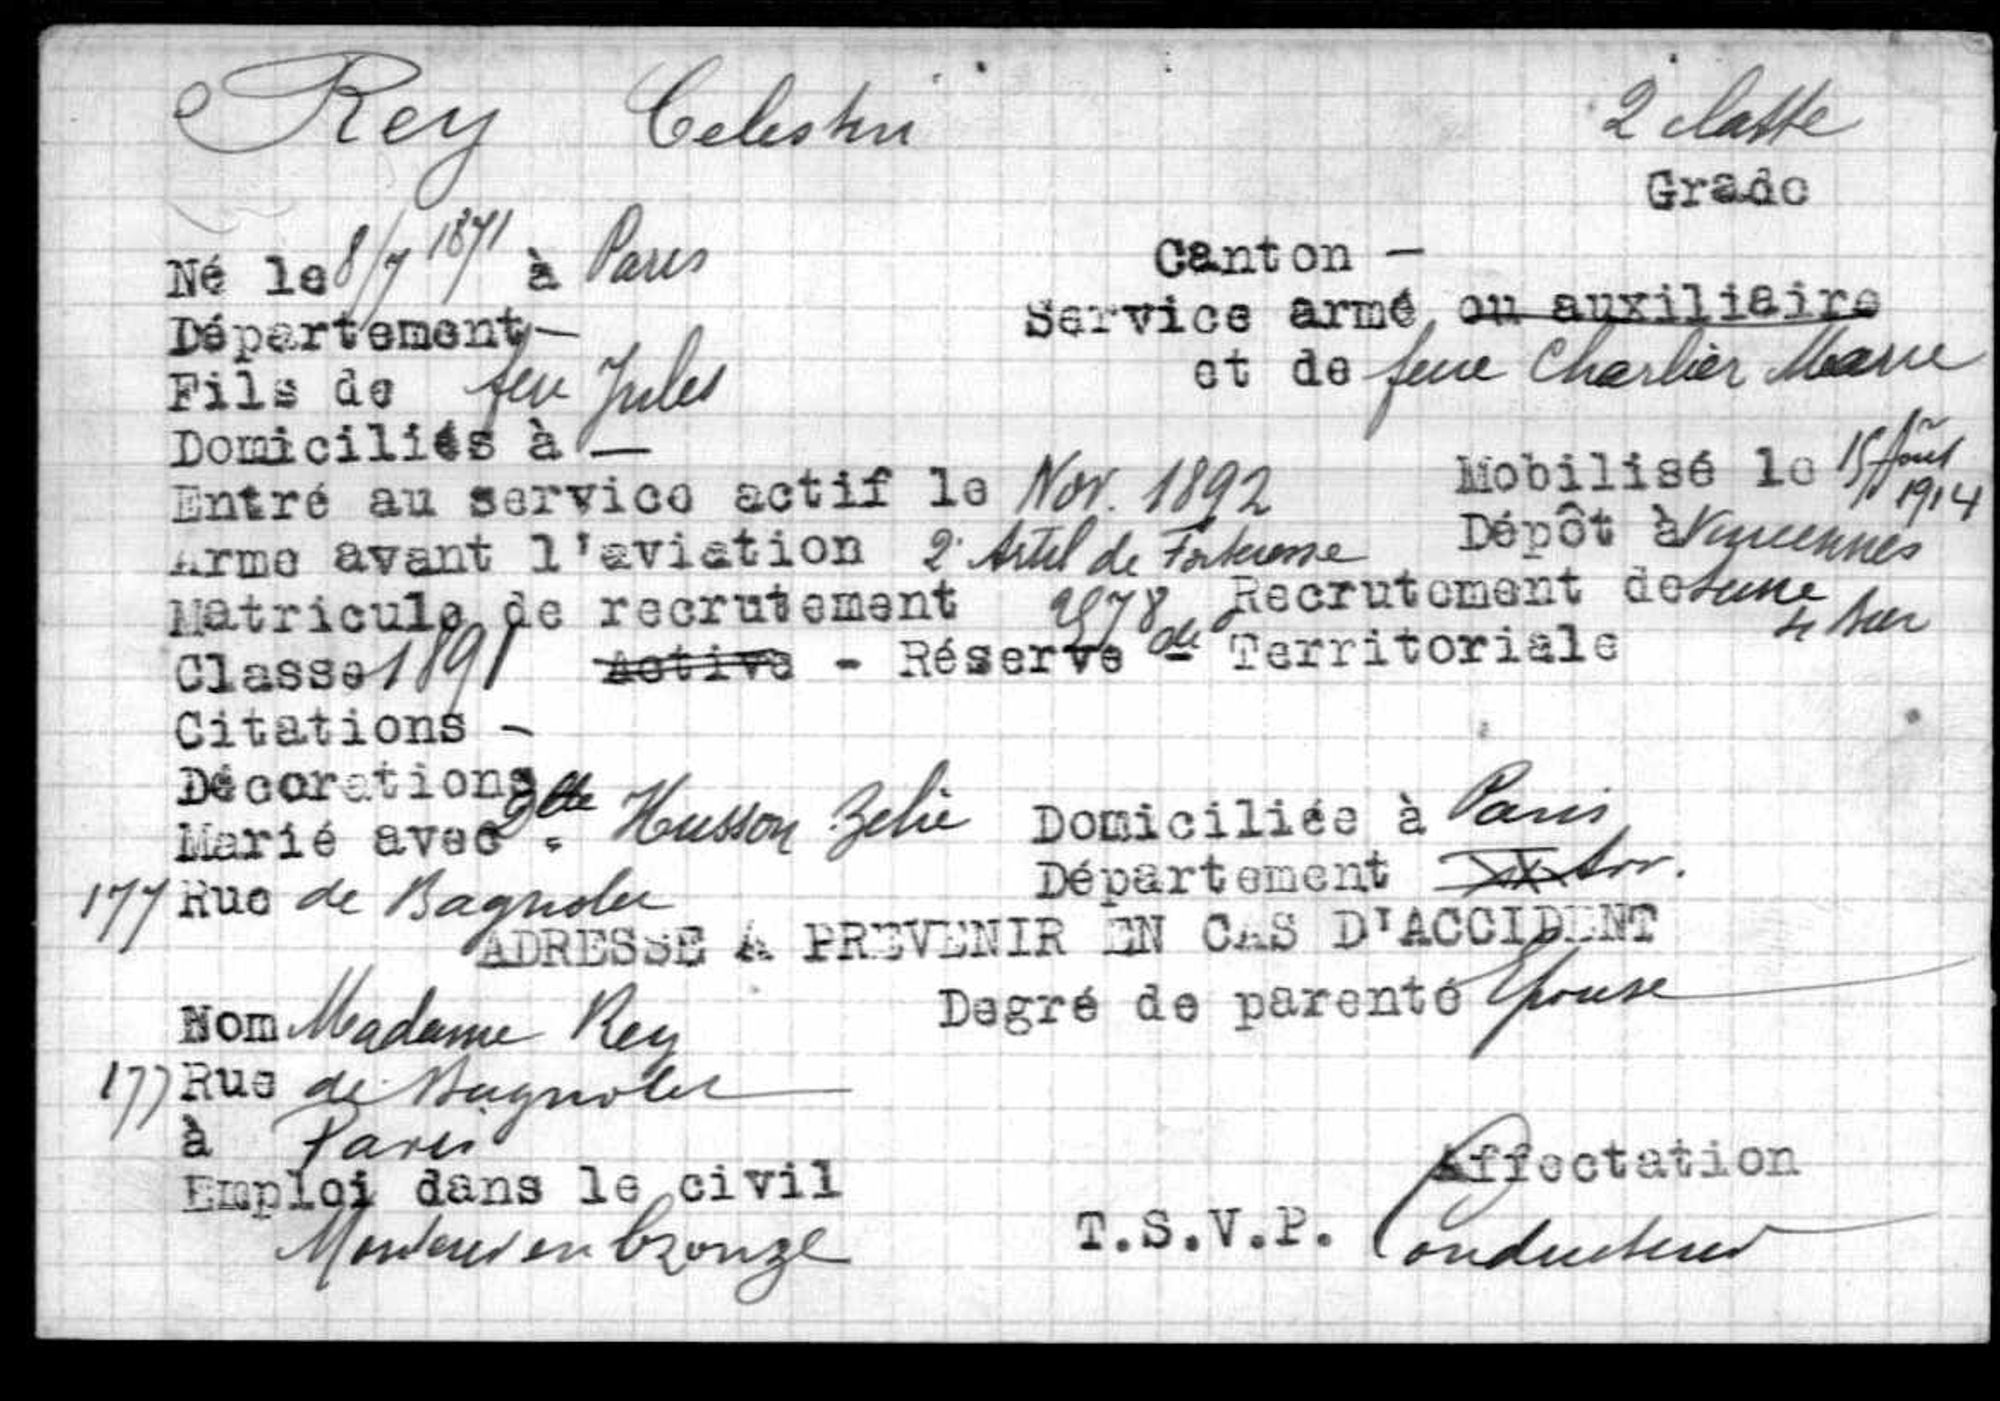 Rey Celestin 2 classe
Grade
Né le 8/7 1871 à Paris Canton -
Département - Service armé ou auxiliaire
Fils de feu Jules et de feue Charlier Marie
Domiciliés à -
Entré au service actif le Nov. 1892 Mobilisé le 15 Août 1914
Arme avant l'aviation 2e Artil de Forteresse Dépôt à Vincennes
Matricule de recrutement 2578 Recrutement de Seine
4 Bur
Classe 1891 Active - Réserve de - Territoriale
Citations -
Décorations
Marié avec Husson Zelie Domiciliée à Paris
177 Rue de Bagnolet Département XX Arr.
ADRESSE A PREVENIR EN CAS D'ACCIDENT
Nom Madame Rey Degré de parenté Epouse
177 Rue de Bagnolet
à Paris
Emploi dans le civil Affectation
Monteur en bronze T.S.V.P. Conducteur